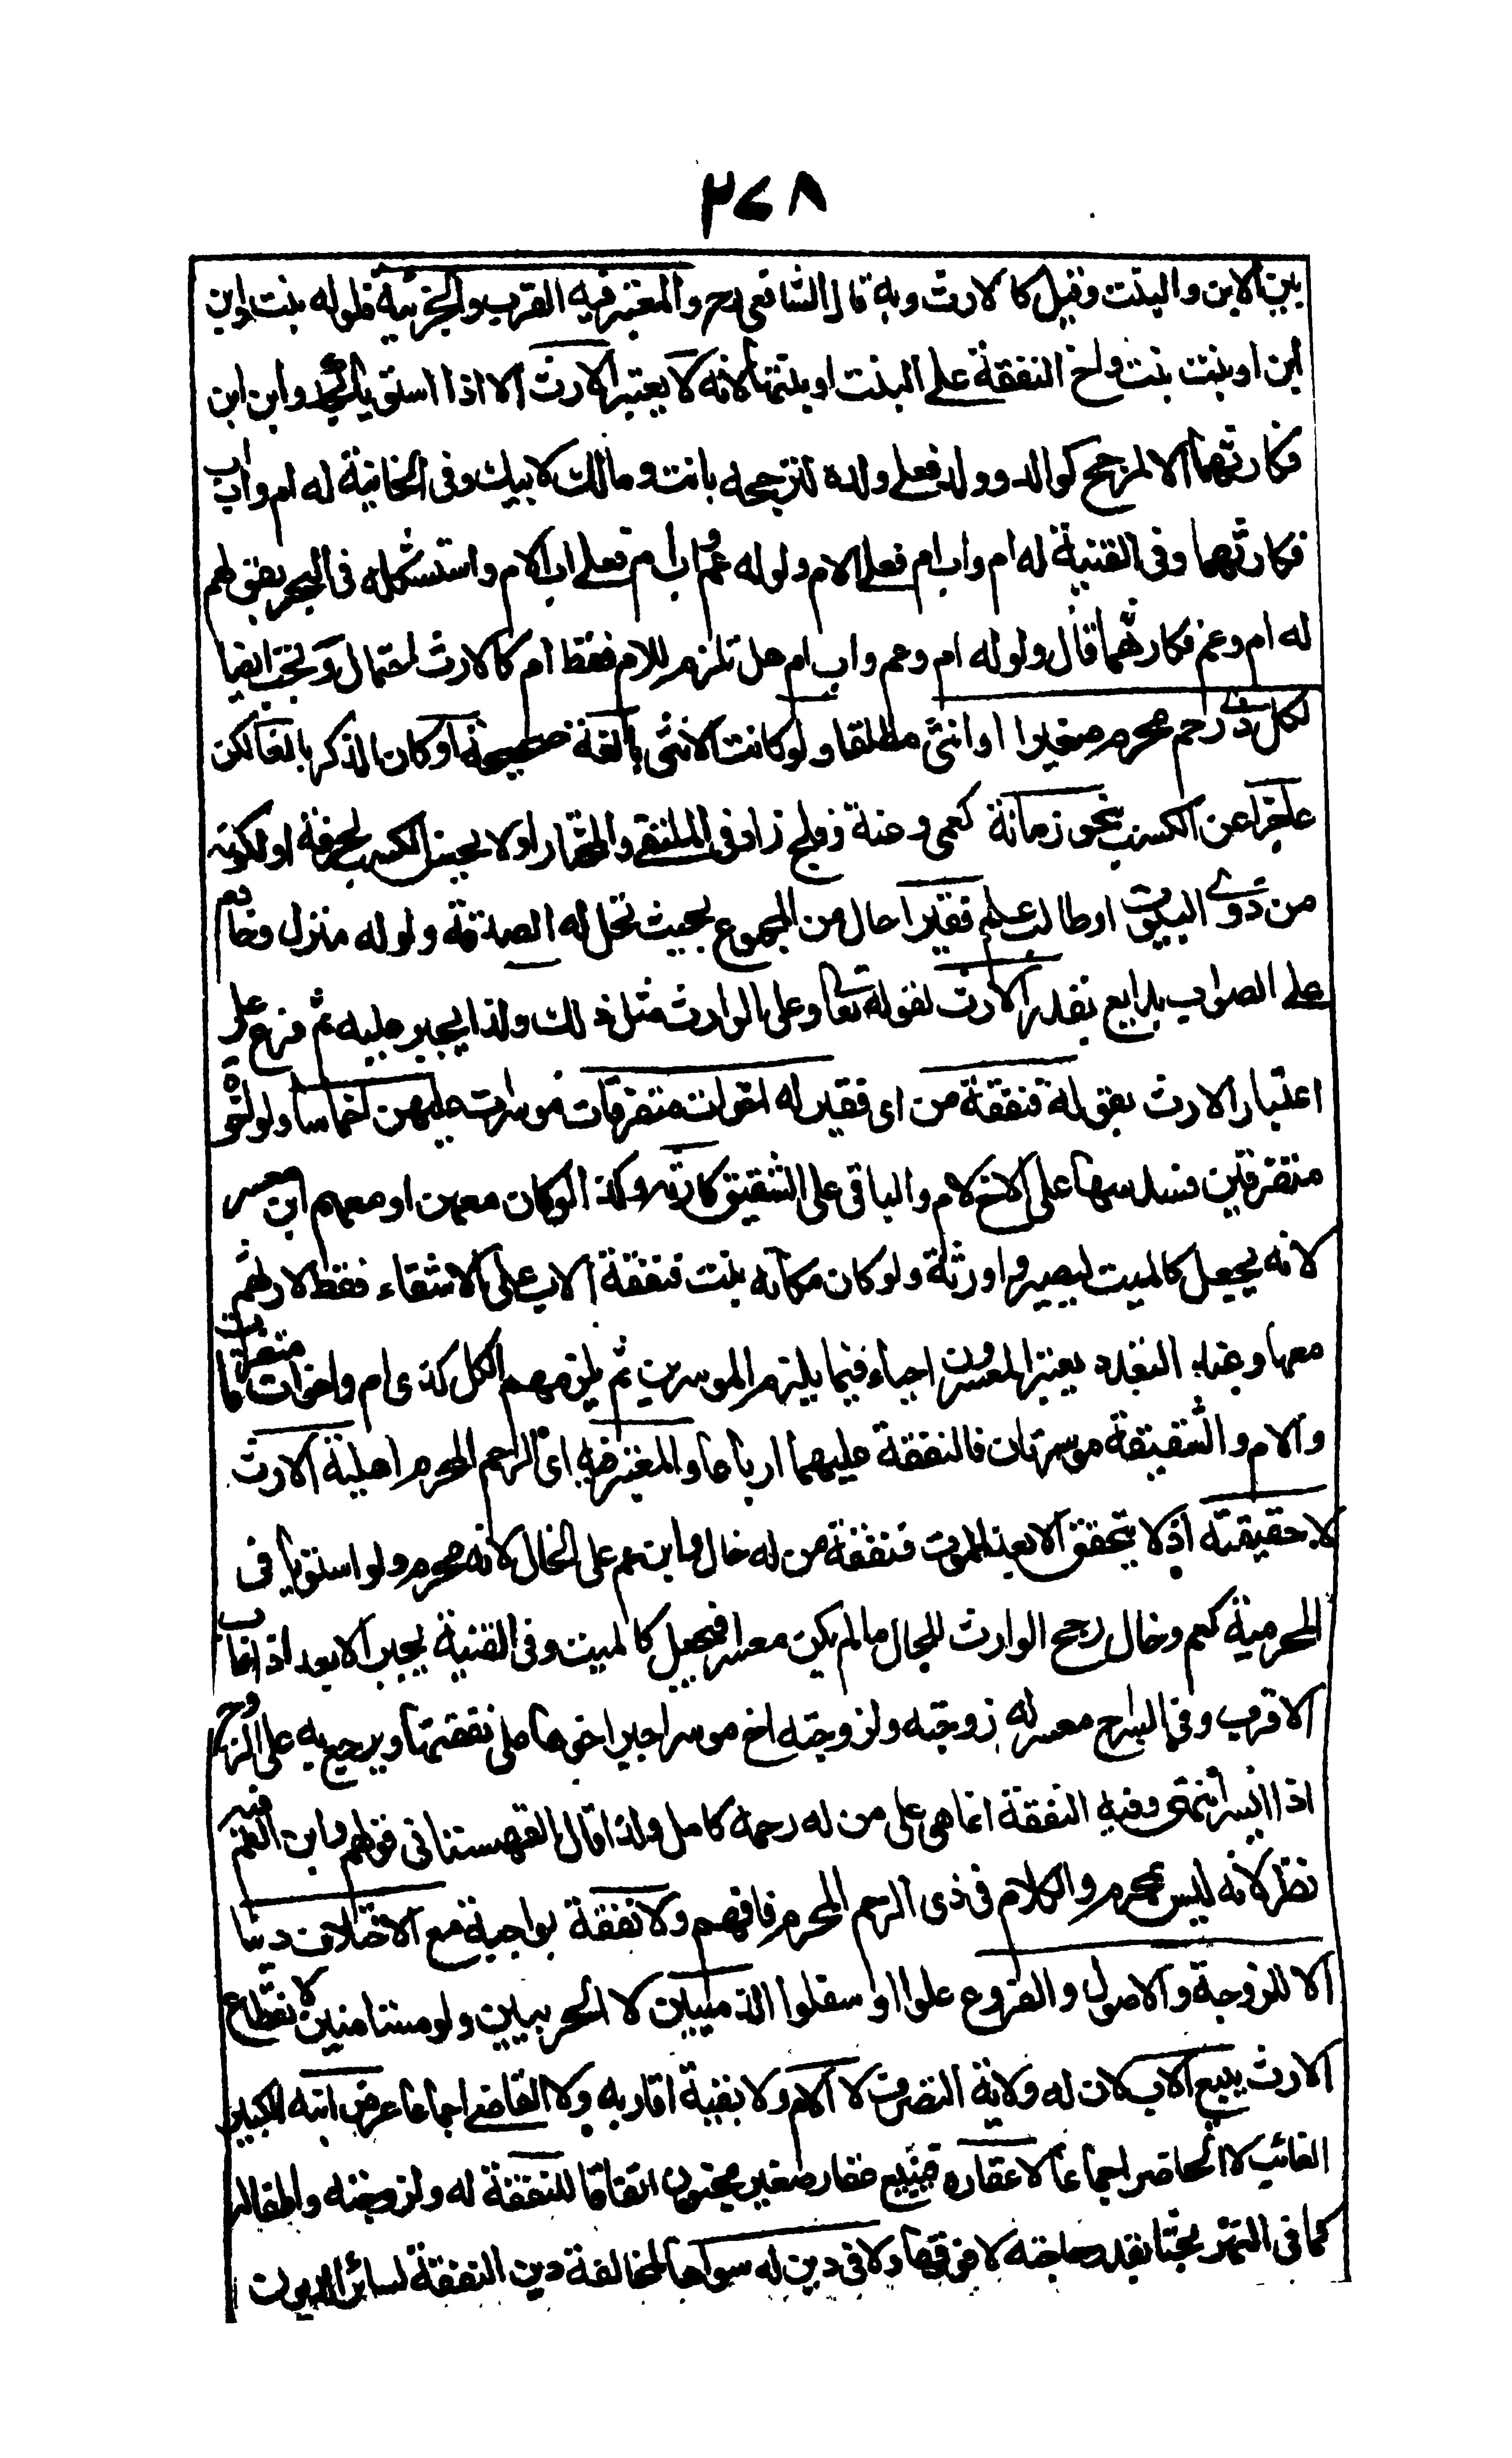 ٢٧٨
بين الابن والبنت وقيل كالارث وبه قال الشافعي رح والمعتبر فيه القرب والجزئية فلو له بنت وابن
ابن او بنت بنت واخ النفقة على البنت او بنتها لانه لا يعتبر الارث الا اذا استويا كجد وابن ابن
فكارثهما الا لمرجح كوالد وولد فعلى ولده لترجحه بانت ومالك لابيك وفى الخانية له ام واب اب
فكارثهما وفى القنية له ام واب ام فعلى الام ولو له عم واب ام فعلى اب الام واستشكله فى البحر بقولهم
له ام وعم فكارثهما قال ولو له ام وعم واب ام هل تلزم للام فقط ام كالارث احتمال وتجب ايضا
لكل ذى رحم محرم صغيرا او انثى مطلقا ولو كانت الانثى بالغة صحيحة او كان الذكر بالغا لكن
عاجزا عن الكسب بنحو زمانة كعمى وعته وفلج زاد فى الملتقى والمختار او لا يحسن الكسب لحرفة او لكونه
من ذوى البيوت او طالب علم فقيرا حال من المجموع بحيث تحل له الصدقة ولو له منزل وخادم
على الصواب بدايع بقدر الارث لقوله تعا وعلى الوارث مثل ذلك ولذا يجبر عليه ثم فرع على
اعتبار الارث بقوله فنفقة من اى فقير له اخوات متفرقات موسرات عليهن اخماسا ولو اخوة
متفرقين فسدسها على الاخ لام والباقى على الشقيق كارثه وكذا لو كان معهن او معهم ابن معسر
لانه يجعل كالميت ليصيروا ورثة ولو كان مكانه بنت فنفقة الاب على الاشقاء فقط لارثهم
معها وعند التعدد يعتبر المعسرون احياء فيما يلزم الموسرين ثم يلزمهم الكل كذى ام واخوات متفرقات
والام والشقيقة موسرتان فالنفقة عليهما ارباعا والمعتبر فيه اى الرحم المحرم اهلية الارث
لا حقيقته اذ لا يتحقق الا بعد الموت فنفقة من له خال وابن عم على الخال لانه محرم ولو استويا فى
المحرمية كعم وخال رجح الوارث للحال ما لم يكن معسرا فيجعل كالميت وفى القنية يجبر الابعد اذا غاب
الاقرب وفى السراج معسر له زوجته ولزوجته اخ موسر اجبر اخوها على نفقتها ويرجع به على الزوج
اذا ايسر انتهى وفيه النفقة انما هى على من له رحمه كامل ولذا قال القهستانى قولهم وابن العم فيه
نظر لانه ليس بمحرم والكلام فى ذى الرحم المحرم فافهم ولا نفقة بواجبة مع الاختلاف دينا
الا للزوجة والاصول والفروع علوا او سفلوا الذميين لا الحربيين ولو مستامنين لانقطاع
الارث يبيع الاب لان له ولاية التصرف لا الام ولا بقية اقاربه ولا القاضى اجماعا عرض ابنه الكبير
الغائب لا الحاضر اجماعا لا عقاره فيبيع عقار صغير مجنون اتفاقا للنفقة له ولزوجته واطفاله
كما فى النهر بحثا بقدر حاجته لا فوقها ولا فى دين له سواها لمخالفة دين النفقة لسائر الديون